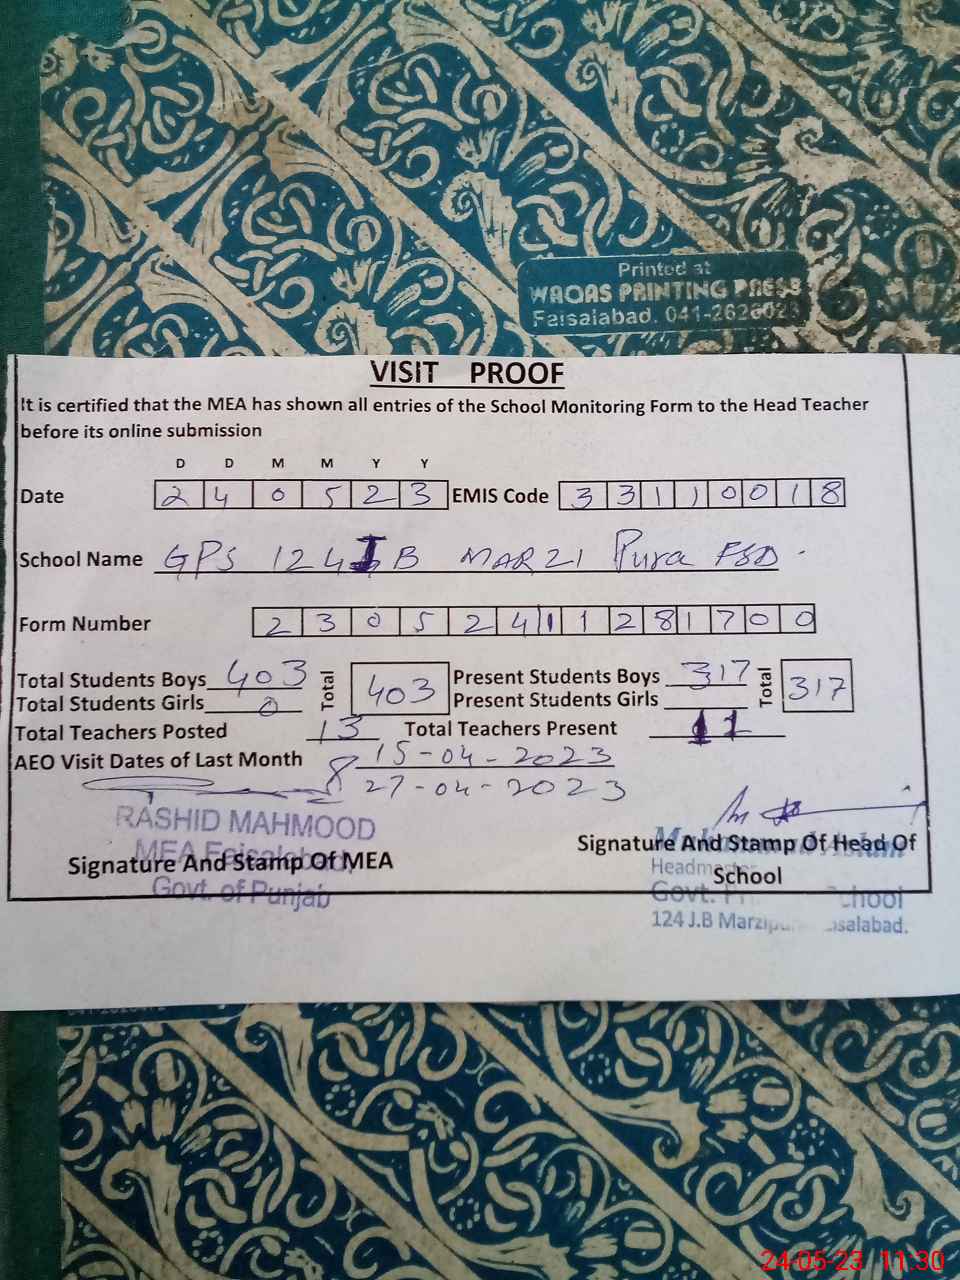 Printed at
WAQAS PRINTING PRESS
Faisalabad. 041-262602
VISIT PROOF
It is certified that the MEA has shown all entries of the School Monitoring Form to the Head Teacher
before its online submission
D D M M Y Y
Date 2 4 0 5 2 3 EMIS Code 3 3 1 1 0 0 1 8
School Name GPS 124 J B MARZI Pura FSD.
Form Number 2 3 0 5 2 4 1 1 2 8 1 7 0 0
Total Students Boys 403 Total 403 Present Students Boys 317 Total 317
Total Students Girls 0 Present Students Girls
Total Teachers Posted 13 Total Teachers Present 11
AEO Visit Dates of Last Month 15-04-2023
27-04-2023
RASHID MAHMOOD
MEA Faisalabad,
Govt. of Punjab
Signature And Stamp Of MEA
Signature And Stamp Of Head Of
School
Headmaster
Govt. School
124 J.B Marzipura Faisalabad.
24-05-23 11:30